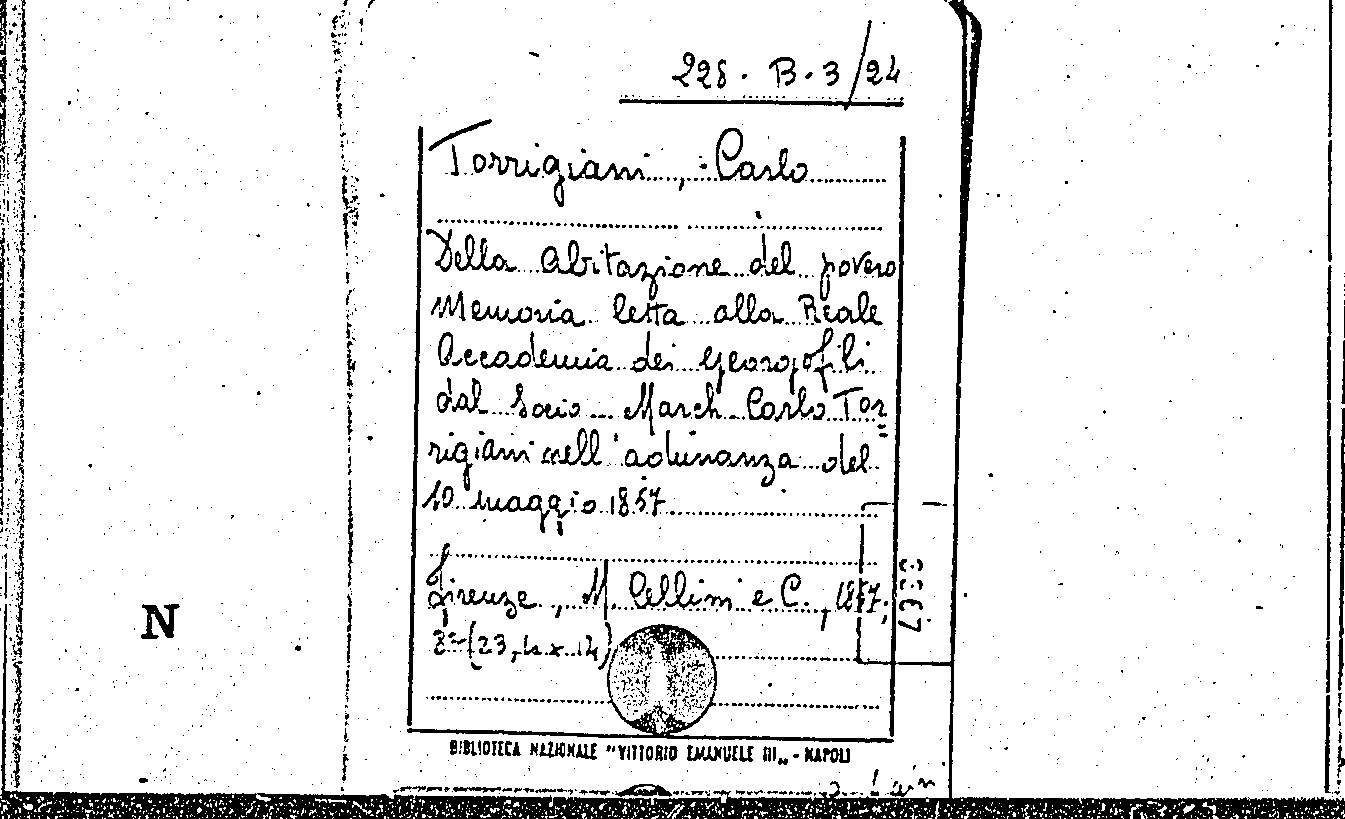 228. B. 3/24
Torrigiani, Carlo
Della abitazione del povero
Memoria letta alla Reale
Accademia dei Georgofili
dal Socio March Carlo Tor=
rigiani nell'adunanza del
10 maggio 1857
Firenze, M. Cellini e C., 1857,
8º (23,4 x 14)
N
BIBLIOTECA NAZIONALE "VITTORIO EMANUELE III„ - NAPOLI